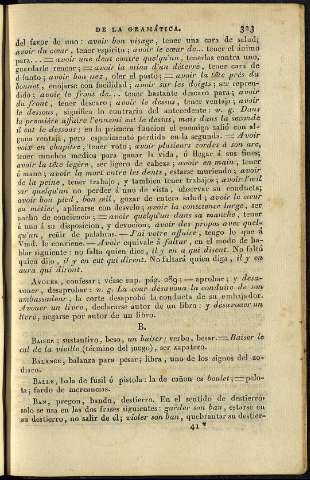 DE LA GRAMÁTICA. 323
del favor de uno: avoir bon visage, tener una cara de salud;
avoir du cœur, tener espíritu; avoir le cœur de... tener el ánimo
para... = avoir une dent contre quelqu'un, tenerlas contra uno,
guardarle rencor; = avoir la mine d'un déterré, tener cara de
difunto; avoir bon nez, oler el poste; = avoir la tête près du
bonnet, enojarse con facilidad; avoir sur les doigts; ser repren-
dido; avoir le front de... tener bastante descaro para; avoir
du front, tener descaro; avoir le dessus, tener ventaja; avoir
le dessous, significa lo contrario del antecedente: v. g. Dans
la première affaire l'ennemi eut le dessus, mais dans la seconde
il eut le dessous; en la primera funcion el enemigo salió con al-
guna ventaja, pero experimentó pérdida en la segunda. = Avoir
voix en chapitre, tener voto; avoir plusieurs cordes à son arc,
tener muchos medios para ganar la vida, ó llegar á sus fines;
avoir la tête légère, ser ligero de cabeza; avoir en main, tener
á mano; avoir la mort entre les dents, estarse muriendo; avoir
de la peine, tener trabajo, y tambien tener trabajos; avoir l'œil
sur quelqu'un no perder á uno de vista, observar su conducta;
avoir bon pied, bon œil, gozar de entera salud; avoir le cœur
au métier, aplicarse con desvelo; avoir la conscience large, ser
ancho de conciencia; = avoir quelqu'un dans sa manche, tener
á uno á su disposicion, y devocion; avoir des propos avec quel-
qu'un, reñir de palabras. — J'ai votre affaire, tengo lo que á
Vmd. le conviene. — Avoir equivale á faltar, en el modo de ha-
blar siguiente: no falta quien dice, il y en a qui disent. No faltó
quien dijo, il y en eut qui dirent. No faltará quien diga, il y en
aura qui diront.
AVOUER, confesar; véase sup. pág. 289: = aprobar; y désa-
vouer, desaprobar: v. g. La cour désavoua la conduite de son
ambassadeur, la corte desaprobó la conducta de su embajador.
Avouer un livre, declararse autor de un libro: y désavouer un
livre, negarse por autor de un libro.
B.
BAISER: sustantivo, beso, un baiser; verbo, besar. = Baiser le
cul de la vieille (término del juego), ser zapatero.
BALANCE, balanza para pesar; libra, uno de los signos del zo-
diaco.
BALLE, bala de fusil ó pistola: la de cañon es boulet; = pelo-
ta; fardo de mercancías.
BAN, pregon, bando, destierro. En el sentido de destierro
solo se usa en las dos frases siguientes: garder son ban, estarse en
su destierro, no salir de él; violer son ban, quebrantar su destier-
41 *